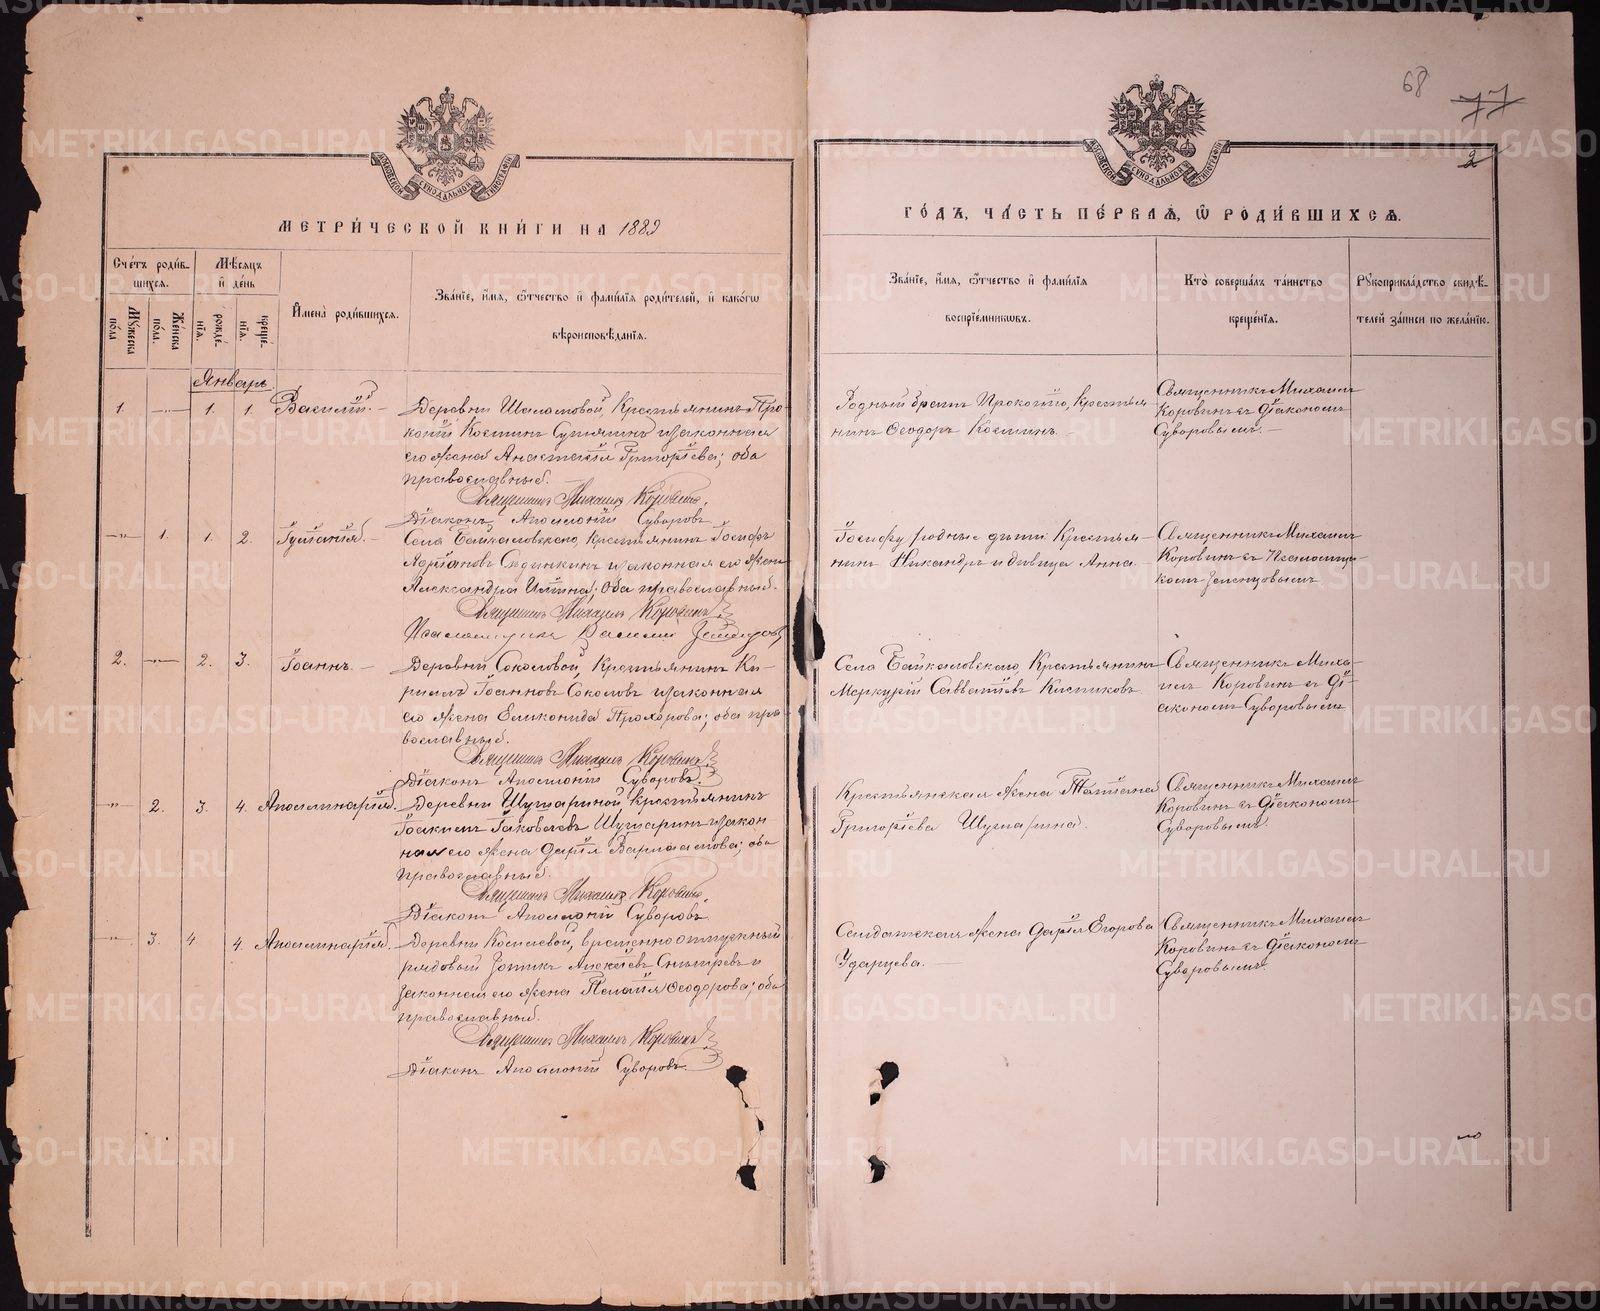 МЕТРИ́ЧЕСКОЙ КНИ́ГИ НА 1889
Сче́тъ роди́в-
шихся.
Мѣсяцъ
и҆ де́нь
И҆мена̀ роди́вшихся.
Зва́нїе, и҆́мя, ѻ҆́тчество и҆ фами́лїя роди́телей, и҆ како́гѡ
вѣроисповѣ́данїя.
Му́жеска
по́ла
Же́нска
по́ла.
рожде́-
нїя.
креще́-
нїя.
Январь.
1. 1. 1. Василій.
Деревни Шаламовой, Крестьянинъ Про-
копій Костинъ Сутягинъ и законная
его жена Анастасія Григоріева; оба
православные.
Священникъ Михаилъ Коровинъ
Діаконъ Аполлоній Суворовъ
1. 1. 2. Іуліанія.
Села Байкаловскаго, Крестьянинъ Іосифъ
Адріановъ и законная его жена
Александра Ильина; оба православные.
Священникъ Михаилъ Коровинъ
Псаломщикъ Василий
2. 2. 3. Іоаннъ.
Деревни Соколовой, Крестьянинъ Ки-
риллъ Іоанновъ Соколовъ и законная
его жена Еликонида Прохорова; оба пра-
вославные.
Священникъ Михаилъ Коровинъ
Діаконъ Аполлоній Суворовъ.
2. 3. 4. Аполлинарія.
Деревни Шушариной, Крестьянинъ
Іоакимъ Іаковлевъ Шушаринъ и закон-
ная его жена Дарія Варлаамова; оба
православные.
Священникъ Михаилъ Коровинъ
Діаконъ Аполлоній Суворовъ.
3. 4. 4. Аполлинарія.
Деревни временно отпускный
рядовый Алексѣевъ Снигиревъ и
законная его жена Пелагія Ѳеодорова; оба
православные.
Священникъ Михаилъ Коровинъ
Діаконъ Аполлоній Суворовъ.
68
77
2
ГО́ДЪ, ЧА́СТЬ ПЕ́РВАЯ, Ѡ҆ РОДИ́ВШИХСЯ.
Зва́нїе, и҆́мя, ѻ҆́тчество и҆ фами́лїя
воспрїе́мниковъ.
Кто̀ соверша́лъ та́инство
креще́нїя.
Рꙋкоприкла́дство свидѣ́-
телей за́писи по жела́нїю.
Родный братъ Прокопію, Крестья-
нинъ Ѳеодоръ Костинъ.
Священникъ Михаилъ
Коровинъ съ Діакономъ
Суворовымъ.
Іосифу родные дѣти: Крестья-
нинъ Никандръ и дѣвица Анна.
Священникъ Михаилъ
Коровинъ съ Псаломщи-
комъ
Села Байкаловскаго, Крестьянинъ
Меркурій Савватіевъ
Священникъ Миха-
илъ Коровинъ съ Ді-
акономъ Суворовымъ
Крестьянская жена Татіана
Григоріева Шушарина.
Священникъ Михаилъ
Коровинъ съ Діакономъ
Суворовымъ.
Солдатская жена Дарія Егорова
Ударцева.
Священникъ Михаилъ
Коровинъ съ Діакономъ
Суворовымъ.
METRIKI.GASO-URAL.RU